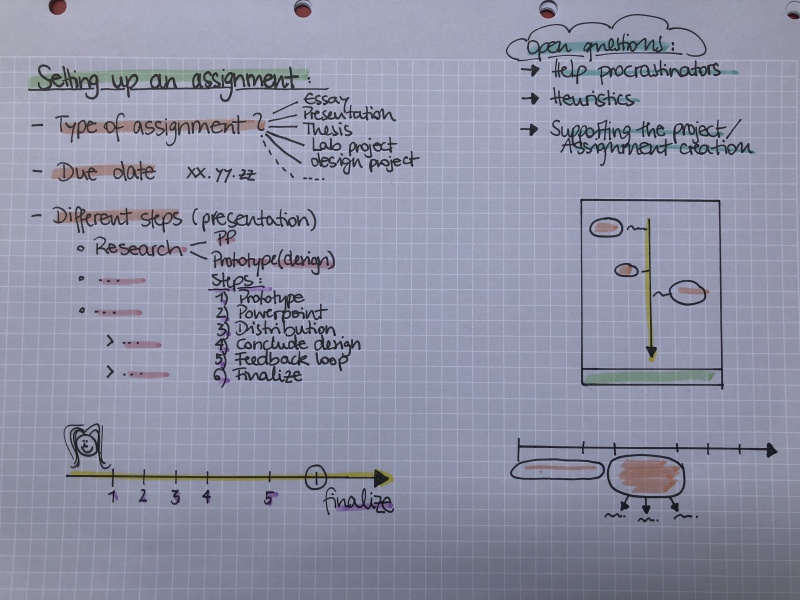 Setting up an assignment:
- Type of assignment?
Essay
Presentation
Thesis
Lab project
design project
....
- Due date xx.yy.zz
- Different steps (presentation)
Research
PP
Prototype(design)
...
...
> ...
> ...
Steps:
1) Prototype
2) Powerpoint
3) Distribution
4) Conclude design
5) Feedback loop
6) Finalize
1 2 3 4 5
finalize
Open questions:
→ Help procrastinators
→ Heuristics
→ Supporting the project/
Assignment creation